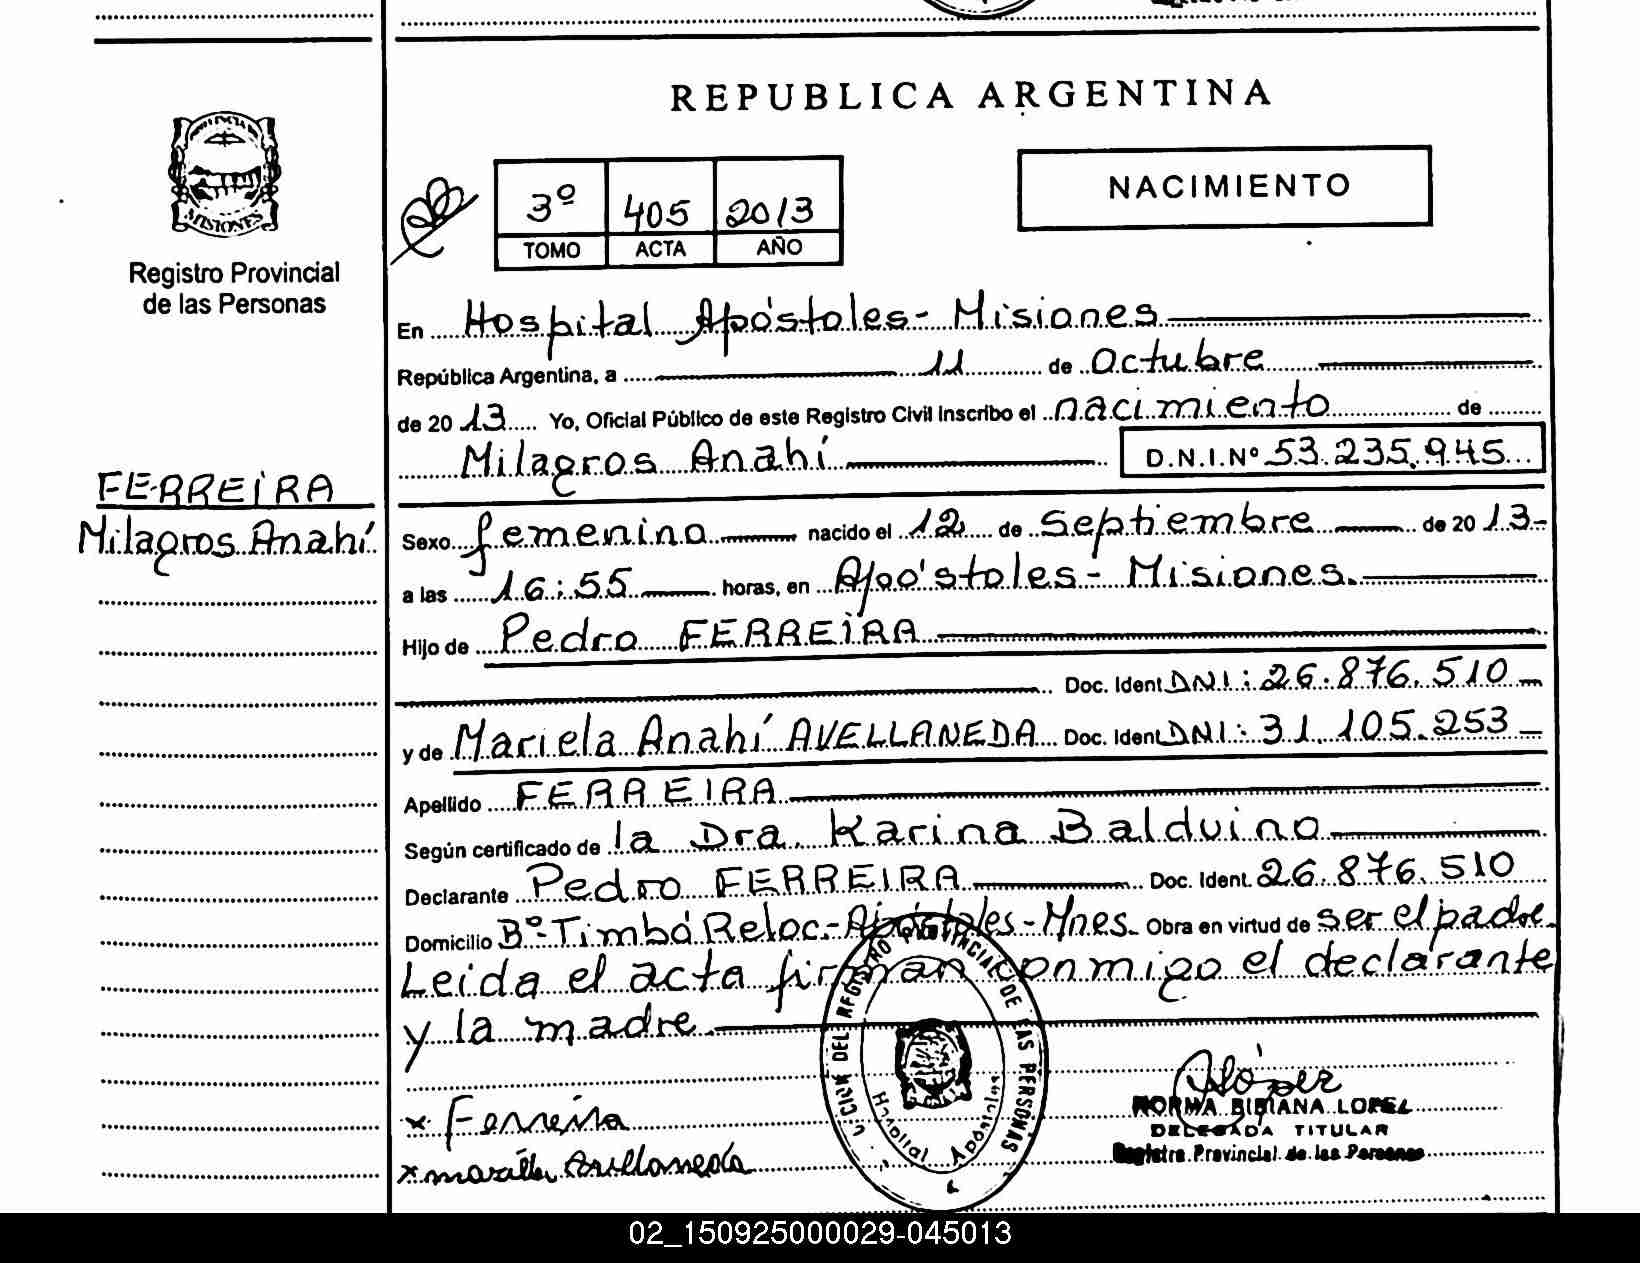 REPUBLICA ARGENTINA
PROVINCIA DE
MISIONES
Registro Provincial
de las Personas
3º 405 2013
TOMO ACTA AÑO
NACIMIENTO
En Hospital Apóstoles - Misiones
República Argentina, a 11 de Octubre
de 20 13 Yo, Oficial Público de este Registro Civil Inscribo el nacimiento de
Milagros Anahí D.N.I.Nº 53.235.945
FERREIRA
Milagros Anahí
Sexo femenino nacido el 12 de Septiembre de 20 13-
a las 16:55 horas, en Apóstoles - Misiones.
Hijo de Pedro FERREIRA
Doc. Ident DNI: 26.876.510
y de Mariela Anahí AVELLANEDA Doc. Ident DNI: 31.105.253
Apellido FERREIRA
Según certificado de la Dra. Karina Balduino
Declarante Pedro FERREIRA Doc. Ident. 26.876.510
Domicilio Bº Timbó Reloc.- Apóstoles - Mnes. Obra en virtud de ser el padre.
Leida el acta firman conmigo el declarante
y la madre.
DEL REGISTRO PROVINCIAL DE LAS PERSONAS
Hospital Apóstoles
x Ferreira
x mariela Avellaneda
López
NORMA BIBIANA LOPEZ
DELEGADA TITULAR
Registro Provincial de las Personas
02_150925000029-045013